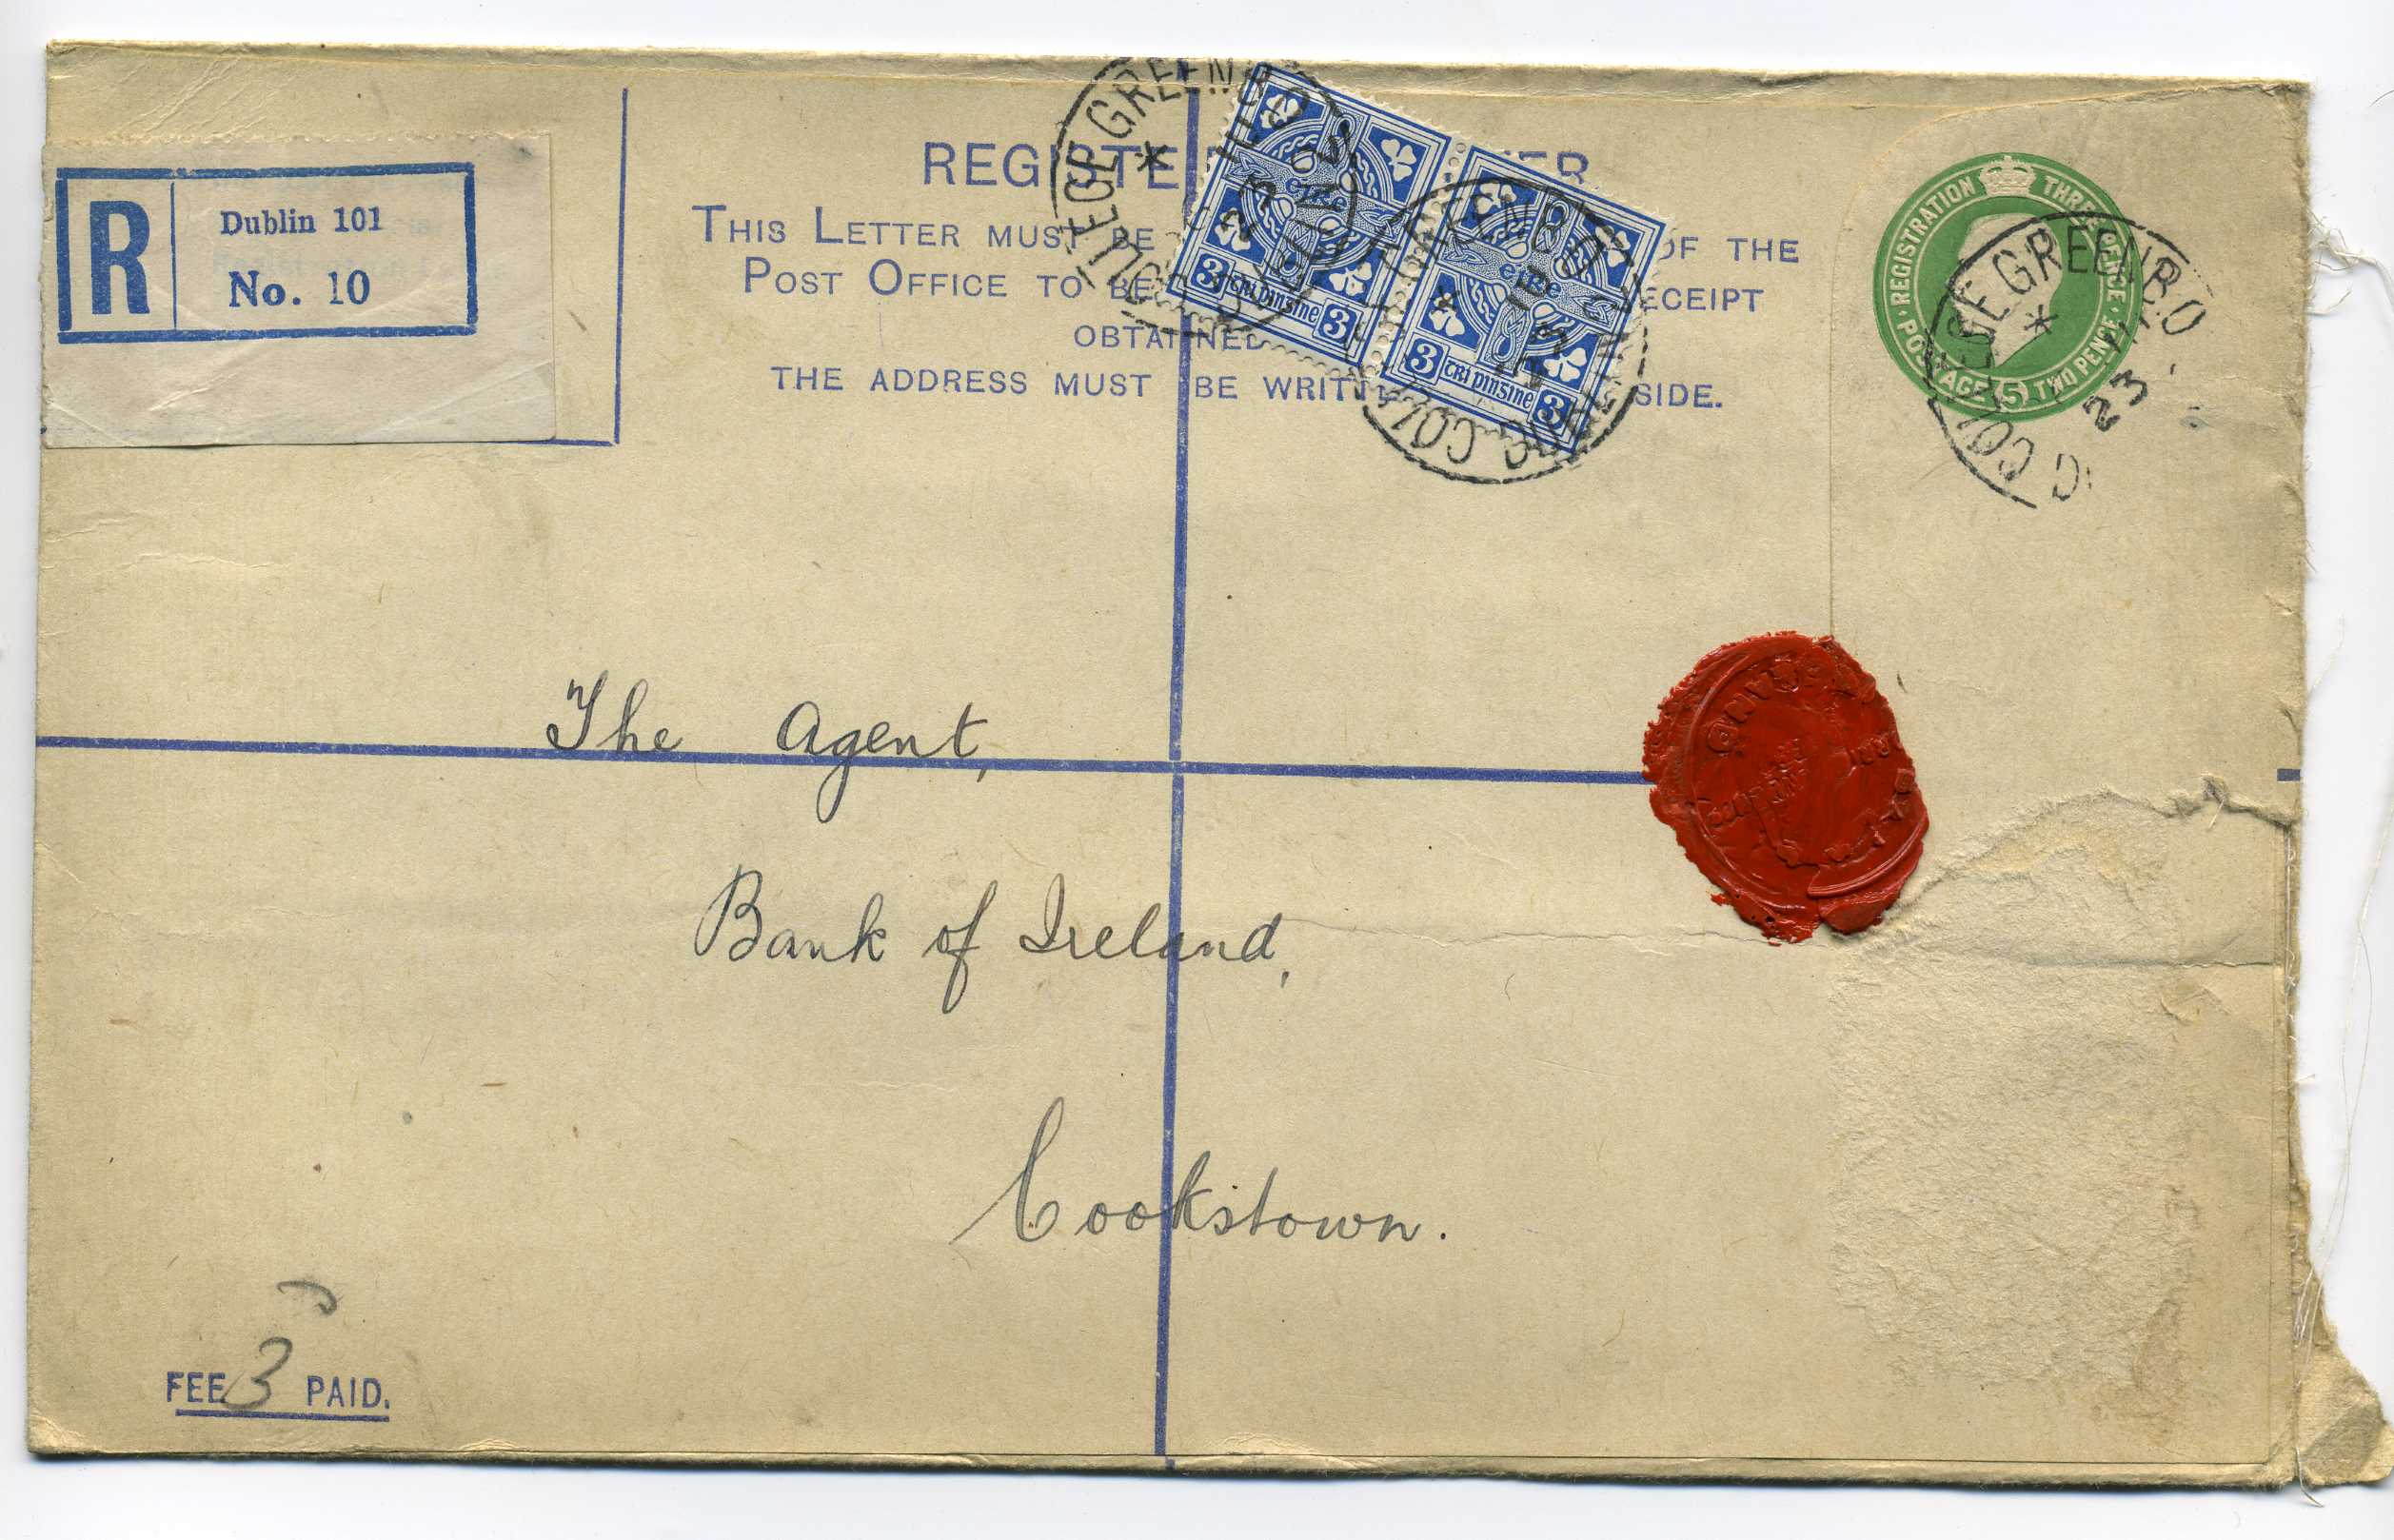 R
Dublin 101
No. 10
REGISTE ER.
THIS LETTER MUST BE OF THE
POST OFFICE TO BE ECEIPT
OBTAINED
THE ADDRESS MUST BE WRITT SIDE.
éire
3 trí pinsine 3
éire
3 trí pinsine 3
COLLEGE GREEN B.O.
23
COLLEGE GREEN B.O.
COLLEGE GREEN B.O.
23
REGISTRATION THREE PENCE
POSTAGE 5 TWO PENCE
The Agent,
Bank of Ireland,
Cookstown.
FEE 3 PAID.